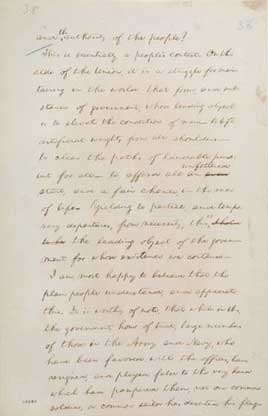 38
and the authority of the people?
This is essentially a people's contest. On the
side of the Union, it is a struggle for main-
taining in the world, that form, and sub-
stance of government, whose leading object
is to elevate the condition of men — to lift
artificial weights from all shoulders —
to clear the paths of laudable pursuit
for all — to afford all, an
unfettered
start, and a fair chance, in the race
of life. Yielding to partial, and tempo-
rary departures, from necessity, this
the leading object of the govern-
ment for whose existence we contend.
I am most happy to believe that the
plain people understand, and appreciate
this. It is worthy of note, that while in this
the government's hour of trial, large numbers
of those in the Army and Navy, who
have been favored with the offices, have
resigned, and played false to the very hand
which had pampered them, not one common
soldier, or common sailor has deserted his flag.